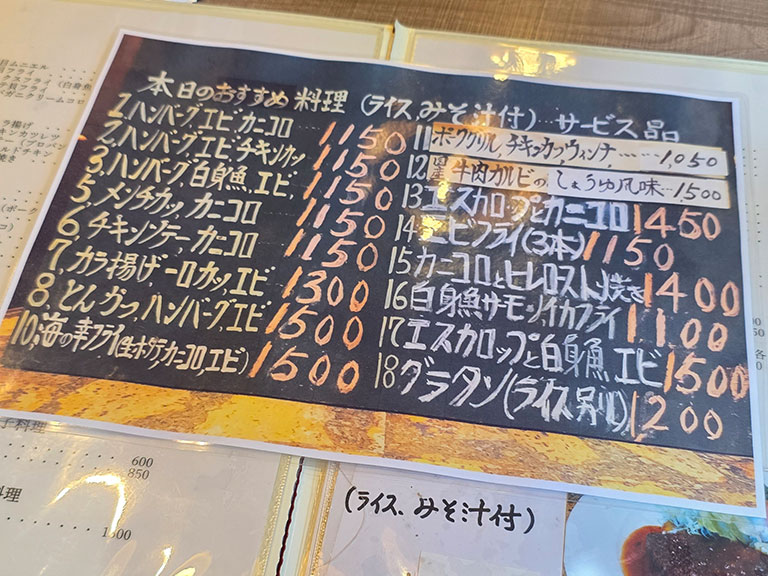 本日のおすすめ料理 (ライス,みそ汁付) サービス品
1,ハンバーグ,エビ,カニコロ 1150
2,ハンバーグエビ,チキンカツ 1150
3,ハンバーグ白身魚,エビ, 1150
5,メンチカツ,カニコロ 1150
6,チキンソテー,カニコロ 1150
7,カラ揚げ,一口カツ,エビ 1300
8,とんかつ,ハンバーグ,エビ 1500
10,海の幸フライ(生ホタテ,カニコロ,エビ) 1500
11 ポークグリル,チキンカツ,ウィンナ……1,050
12 牛肉カルビのしょうゆ風味…1,500
13 エスカロップとカニコロ 1450
14 エビフライ(3本) 1150
15 カニコロとヒレロスト焼き 1400
16 白身魚サーモン,イカフライ 1100
17 エスカロップと白身魚エビ 1500
18 グラタン(ライス別) 1200
子料理
600
850
料理
(ライス、みそ汁付)